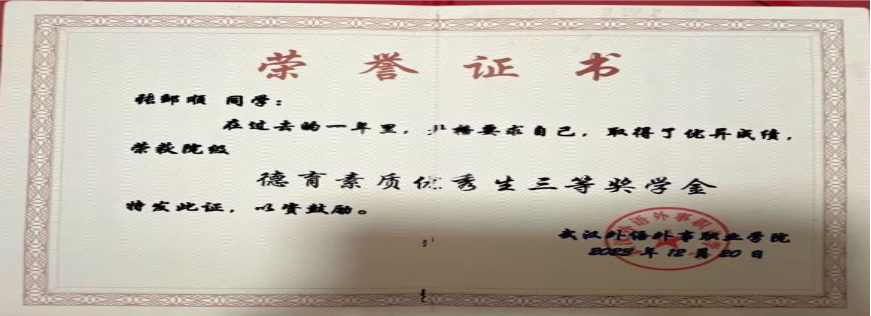 荣誉证书
张邹顺 同学：
在过去的一年里，严格要求自己，取得了优异成绩，
荣获院级
德育素质优秀生三等奖学金
特发此证，以资鼓励。
武汉外语外事职业学院
2023年12月20日